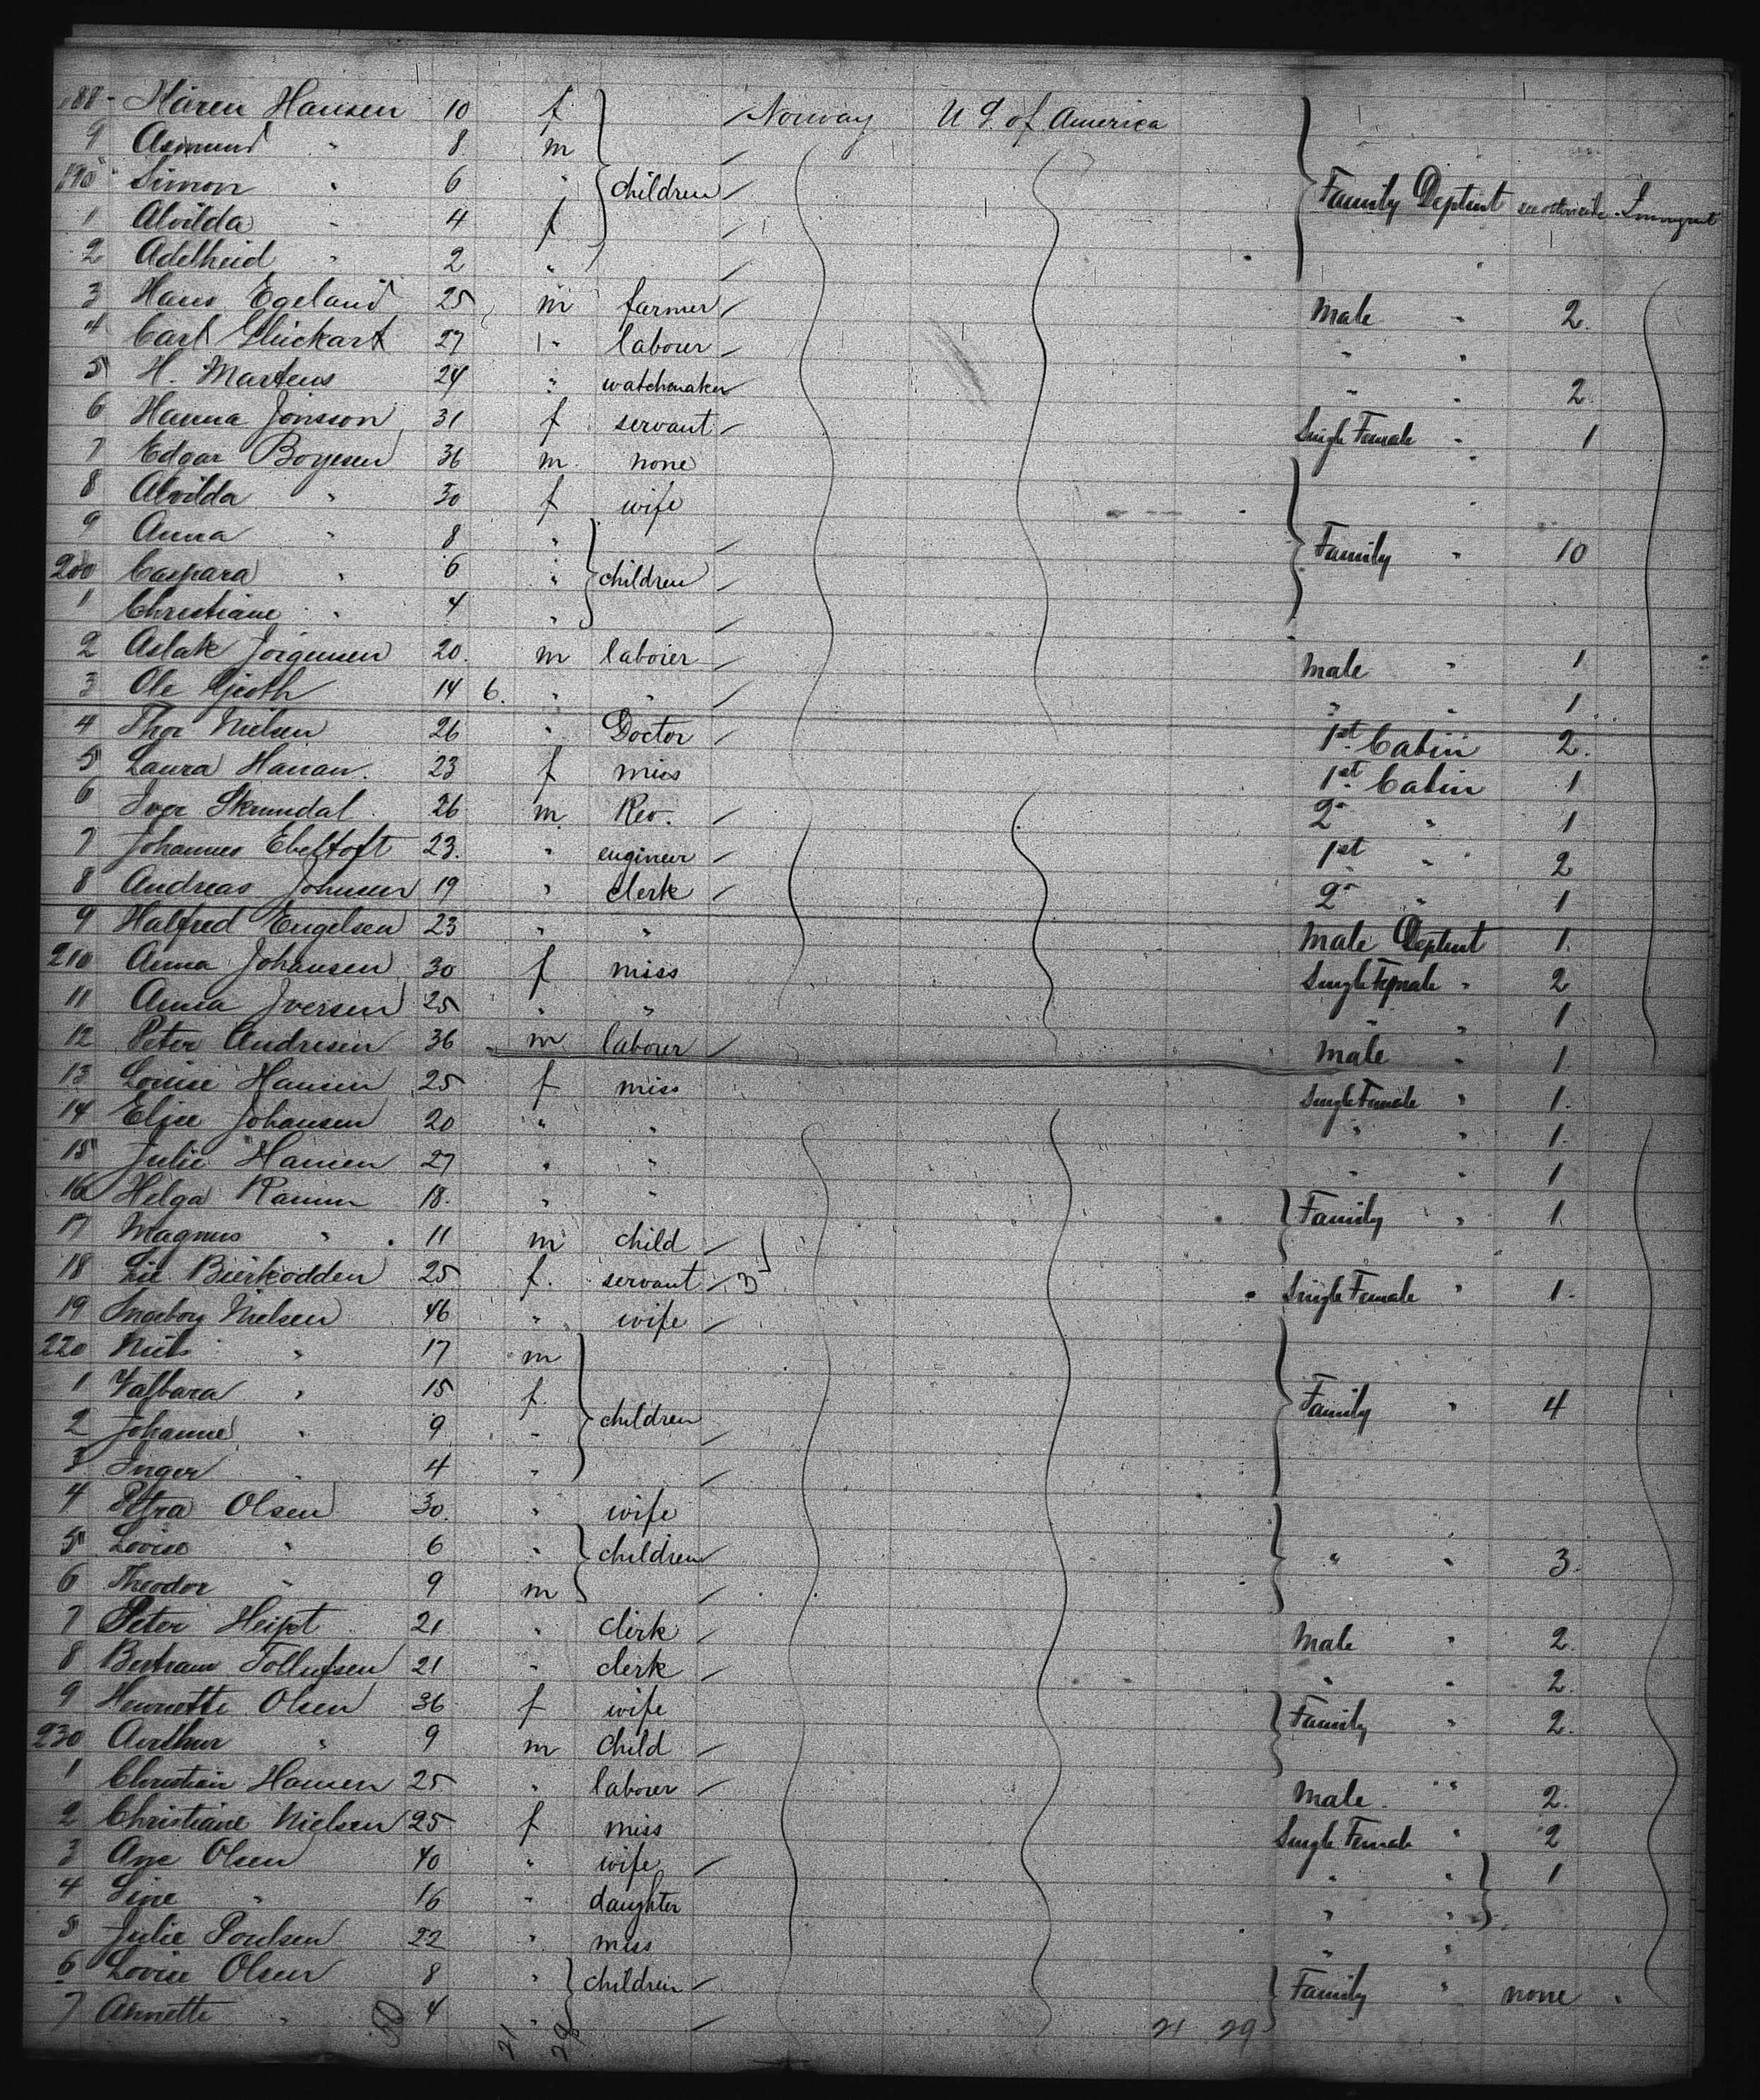 188 - Karen Hansen 10 f Norway U S. of America
9 Asmund " 8 m
190 Simon " 6 " children Family Deptmt see other side
1 Alvilda " 4 f
2 Adelheid " 2 "
3 Hans Egeland 25 m farmer Male " 2.
4 Carl 27 " labourer " "
5 H. Martens 24 " watchmaker " " 2.
6 Hanna Jonsson 31 f servant Single Female " 1
7 Edgar Boyesen 36 m. none
8 Alvilda " 30 f wife
9 Anna " 8 " Family " 10
200 Caspara " 6 " children
1 Christiane " 4 "
2 Aslak Jörgensen 20. m laborer Male " 1
3 Ole Gjoth 14 6. " " " " 1
4 Thor Nielsen 26 " Doctor 1st Cabin 2.
5 Laura Hanan. 23 f miss 1st Cabin 1
6 Iver 26 m Rev. 2d " 1
7 Johannes Ebeltoft 23. " engineer 1st " 2
8 Andreas Johnsen 19 " clerk 2d " 1
9 Halfred Engelsen 23 " " Male Deptmt 1.
210 Anna Johansen 30 f miss Single Female " 2
11 Anna Iversen 25 " " " " 1
12 Peter Andresen 36 m laborer Male " 1
13 Louise Hansen 25 f miss Single Female " 1.
14 Elise Johansen 20 " " " " 1.
15 Julie Hansen 27 " " " " 1
16 Helga 18. " " Family " 1.
17 Magnus " 11 m child
18 Lie Bierkodden 25 f. servant 3 Single Female " 1.
19 Ingeborg Nielsen 46 " wife
220 Niels " 17 m
1 Valbara " 15 f. Family " 4
2 Johanne " 9 " children
3 Inger " 4 "
4 Petra Olsen 30. " wife
5 Lovise " 6 " children " " 3.
6 Theodor " 9 m
7 Peter Heist 21 " clerk Male " 2.
8 Bertram Tollefsen 21 " clerk " " 2.
9 Henriette Olsen 36 f wife Family " 2.
230 Aerthur " 9 m child
1 Christian Hansen 25 " laborer Male " 2.
2 Christiane Nielsen 25 f miss Single Female " 2
3 Ane Olsen 40 " wife " " 1
4 Sine " 16 " daughter " "
5 Julie Poulsen 22 " miss " "
6 Lovise Olsen 8 " children Family " none
7 Annette " 4 "
50 21 29 21 29